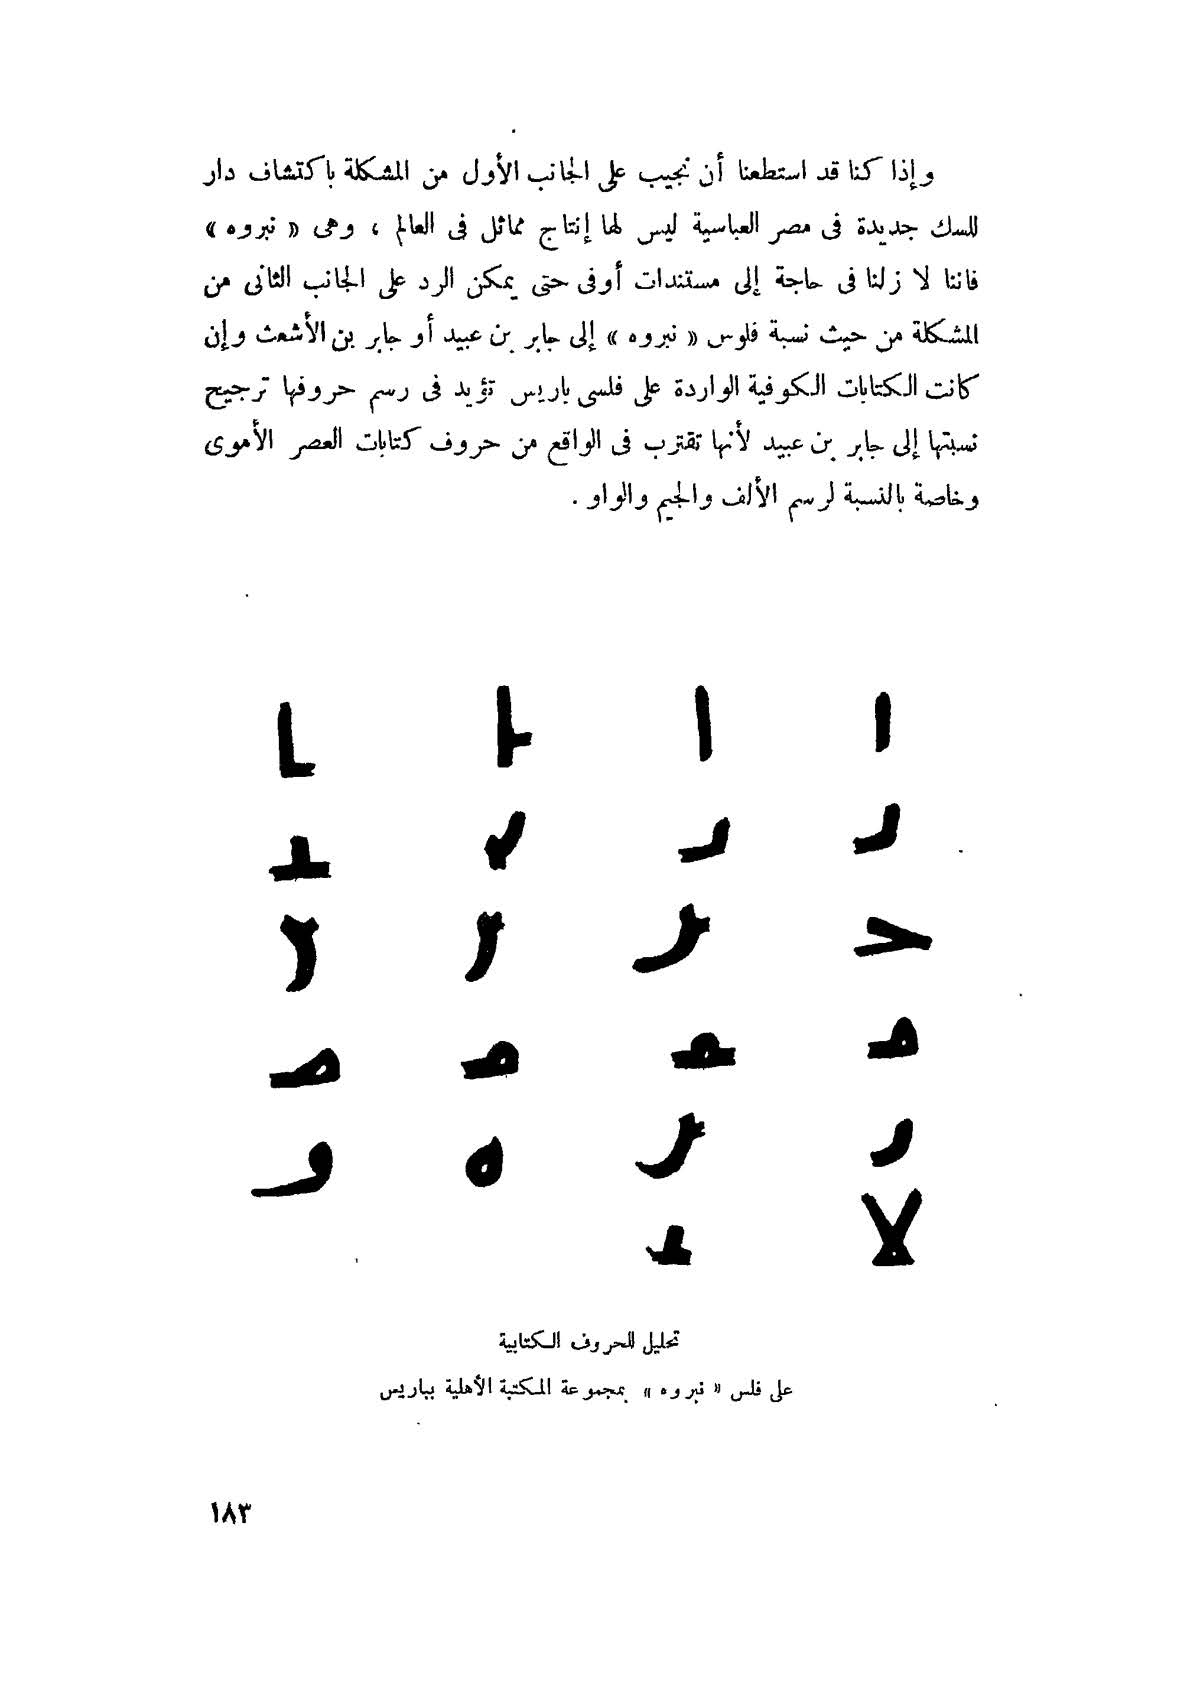 وإذا كنا قد استطعنا أن نجيب على الجانب الأول من المشكلة باكتشاف دار
للسك جديدة فى مصر العباسية ليس لها إنتاج مماثل فى العالم ، وهى « نبروه »
فاننا لا زلنا فى حاجة إلى مستندات أوفى حتى يمكن الرد على الجانب الثانى من
المشكلة من حيث نسبة فلوس « نبروه » إلى جابر بن عبيد أو جابر بن الأشعث وإن
كانت الكتابات الكوفية الواردة على فلسى باريس تؤيد فى رسم حروفها ترجيح
نسبتها إلى جابر بن عبيد لأنها تقترب فى الواقع من حروف كتابات العصر الأموى
وخاصة بالنسبة لرسم الألف والجيم والواو .
تحليل للحروف الكتابية
على فلس « نبروه » بمجموعة المكتبة الأهلية بباريس
١٨٣